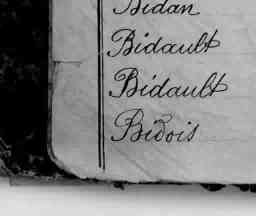 Bidan
Bidault
Bidault
Bidois